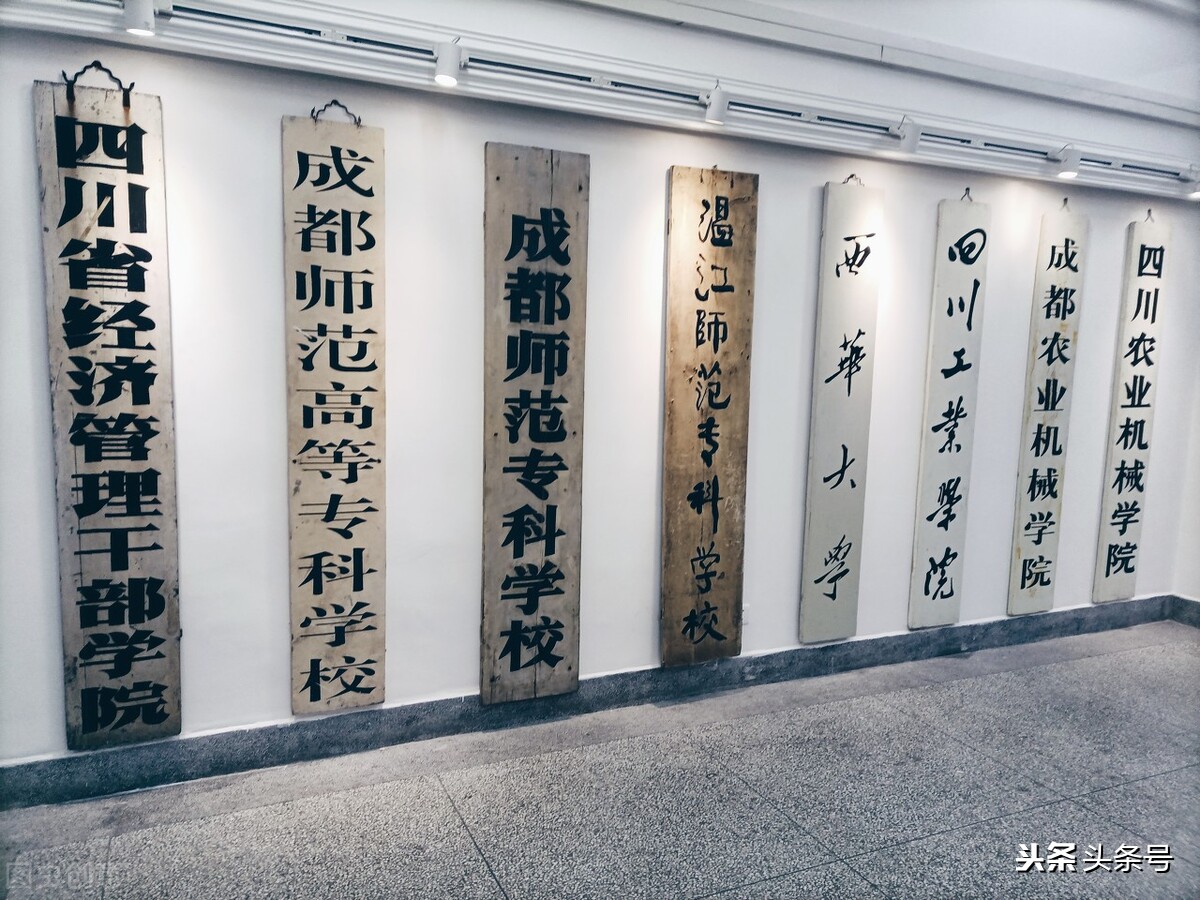 四川省经济管理干部学院
成都师范高等专科学校
成都师范专科学校
温江師范专科学校
西華大學
四川工業學院
成都农业机械学院
四川农业机械学院
头条 头条号